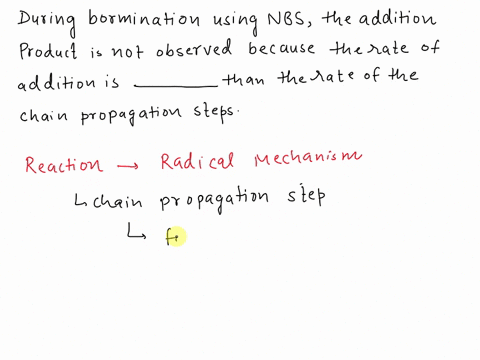 During bormination using NBS, the addition
Product is not observed because the rate of
addition is ________ than the rate of the
chain propagation steps.
Reaction → Radical Mechanism
↳ chain propagation step
↳ f